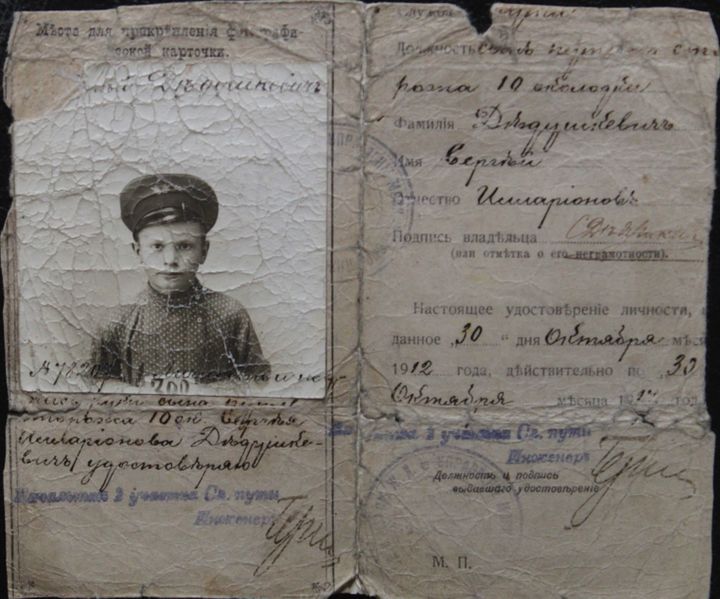 Мѣсто для прикрѣпленія фотографи-
ческой карточки.
Дѣдушкевичъ
№ 7820
700
сына
сторожа 10 ок. Сергѣя
Илларіонова Дѣдушке-
вичъ удостовѣряю
Начальникъ 2 участка Сл. пути
Инженеръ
Служб
Должность сынъ
рожа 10 околодка
Фамилія Дѣдушкевичъ
Имя Сергѣй
Отчество Илларіоновъ
Подпись владѣльца
(или отмѣтка о его неграмотности).
Настоящее удостовѣреніе личности,
данное „30“ дня Октября мѣся
1912 года, дѣйствительно по „30
Октября мѣсяца 19 год
Начальникъ 2 участка Сл. пути
Инженеръ
Должность и подпись
выдавшаго удостовѣреніе
М. П.